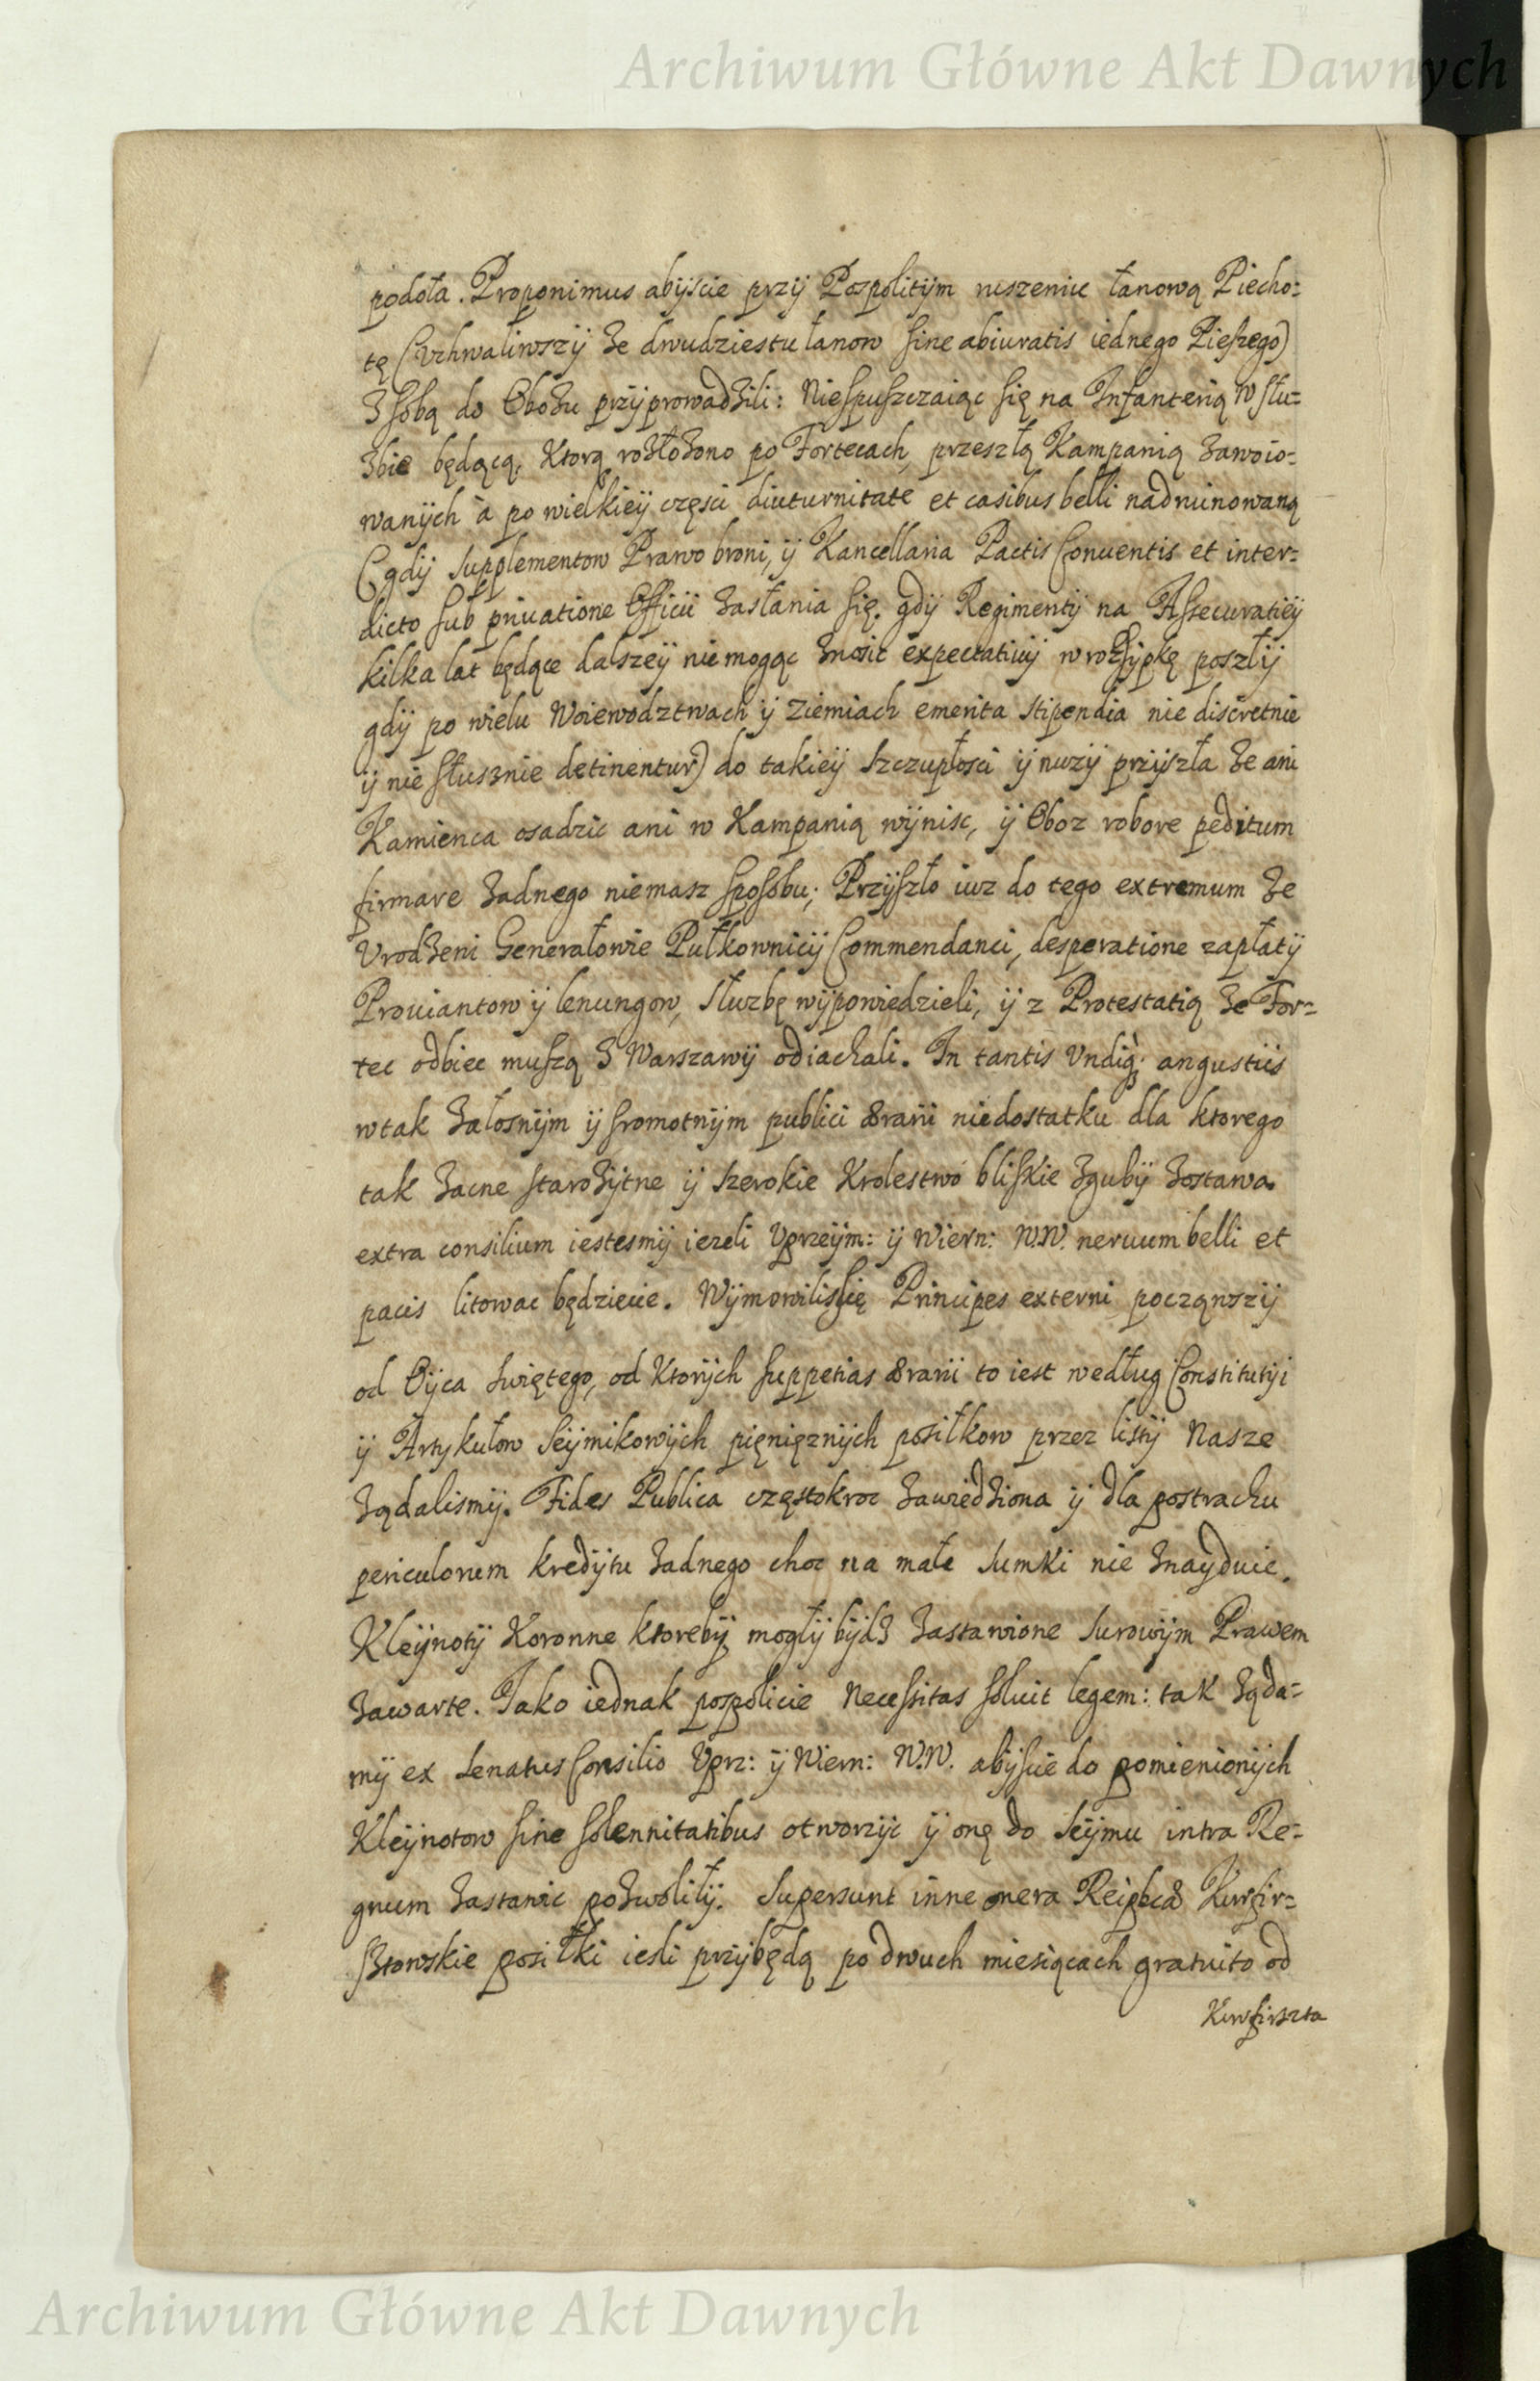 Archiwum Główne Akt Dawnych
podoła. Proponimus abyscie przÿ Pospolitÿm ruszeniu łanową Piecho:
tę (Vchwaliwszÿ że dwudziestu łanow sine abiuratis iednego Pieszego)
z sobą do Obozu przÿprowadzili: Niespuszczaiąc się na Infanterią w słu:
żbie będącą, Ktorą rozłożono po Fortecach, przeszłą Kampanią zawoio:
wanÿch à po wielkieÿ częsci diuturnitate et casibus belli nadruinowaną
(gdÿ Supplementow Prawo broni, ÿ Kancellaria Pactis Conuentis et inter:
dicto sub priuatione Officii zasłania się. gdÿ Regimentÿ na Assecuratieÿ
kilka lat będące dalszeÿ nie mogąc znosic expectatiuÿ w rozsÿpkę poszłÿ
gdÿ po wielu Woiewodztwach ÿ Ziemiach emerita stipendia nie discretnie
ÿ nie słusznie detinentur) do takieÿ szczupłosci ÿ nuzÿ przÿszła że ani
Kamienca osadzic ani w Kampanią wÿnisc, ÿ Oboz robore peditum
firmare żadnego niemasz sposobu; Przÿszło iuz do tego extremum że
Vrodzeni Generałowie Pułkownicÿ Commendanci, desperatione zapłatÿ
Prouiantow ÿ lenungow, Służbę wÿpowiedzieli, ÿ z Protestatią że For:
tec odbiec muszą z Warszawÿ odiachali. In tantis Vndiq; angustiis
w tak żałosnÿm ÿ sromotnÿm publici ærarii niedostatku dla ktorego
tak zacne starożÿtne ÿ szerokie Krolestwo bliskie zgubÿ zostawa.
extra consilium iestesmÿ iezeli Vprzeÿm: ÿ Wiern: W.W. neruum belli et
pacis litowac będziecie. Wÿmowilisię Principes externi począwszÿ
od Oÿca Swiętego, od Ktorÿch suppetias ærarii to iest według Constitutÿi
ÿ Artykułow Seÿmikowÿch pięnięznÿch posiłkow przez listÿ Nasze
żądalismÿ. Fides Publica częstokroc zawiedziona ÿ dla postrachu
periculorum kredÿtu żadnego choc na małe Sumki nie znaÿduie.
Kleÿnotÿ Koronne ktorebÿ mogłÿ bÿdz zastawione Surowÿm Prawem
zawarte. Jako iednak pospolicie Necessitas soluit legem: tak żąda:
mÿ ex Senatus Consilio Vprz: ÿ Wiern: W.W. abÿscie do pomienionÿch
Kleÿnotow sine solennitatibus otworzÿc ÿ onę do Seÿmu intra Re:
gnum zastawic pozwolilÿ. Supersunt inne onera Reipbcæ Kurfir:
sztowskie posiłki iesli przÿbędą po dwuch miesiącach gratuito od
Kurfirszta
Archiwum Główne Akt Dawnych